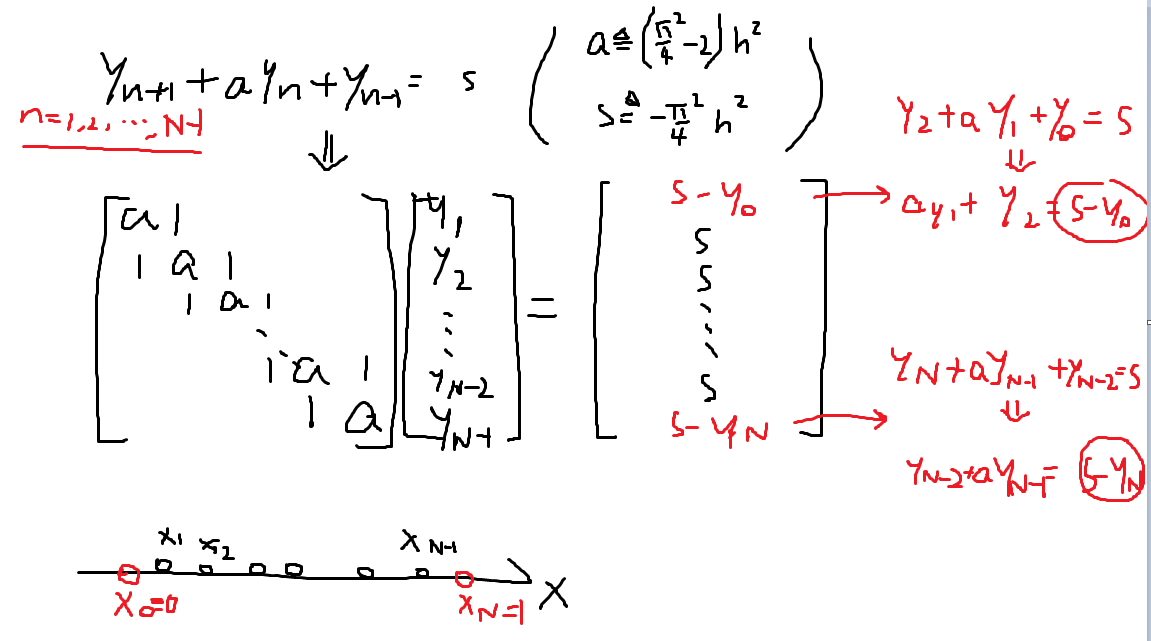 y_{n+1} + a y_n + y_{n-1} = s
( a ≜ (π²/4 - 2) h²
s ≜ -π²/4 h² )
n=1,2,⋯,N-1
⇓
[ a 1
1 a 1
1 a 1
⋱
1 a 1
1 a ]
[ y_1
y_2
⋮
y_{N-2}
y_{N-1} ]
=
[ s - y_0
s
s
⋮
s
s - y_N ]
y_2 + a y_1 + y_0 = s
⇓
→ a y_1 + y_2 = s - y_0
y_N + a y_{N-1} + y_{N-2} = s
→ ⇓
y_{N-2} + a y_{N-1} = s - y_N
x_1 x_2 x_{N-1}
x_0=0 x_N=1 x